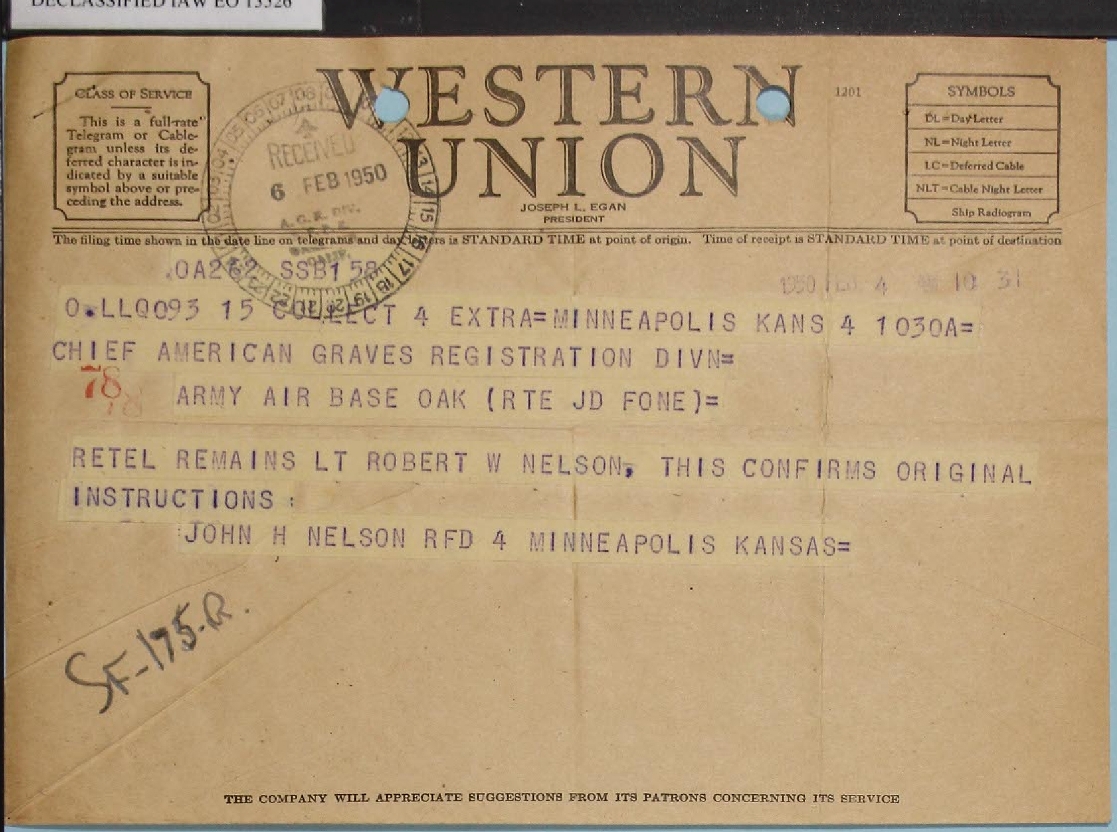 DECLASSIFIED IAW EO 13526
CLASS OF SERVICE
This is a full-rate
Telegram or Cable-
gram unless its de-
ferred character is in-
dicated by a suitable
symbol above or pre-
ceding the address.
WESTERN
UNION
JOSEPH L. EGAN
PRESIDENT
1201
SYMBOLS
DL=Day Letter
NL=Night Letter
LC=Deferred Cable
NLT=Cable Night Letter
Ship Radiogram
RECEIVED
6 FEB 1950
The filing time shown in the date line on telegrams and day letters is STANDARD TIME at point of origin. Time of receipt is STANDARD TIME at point of destination
.OA262 SSB158
1950 FEB 4 AM 10 31
O.LLQ093 15 COLLECT 4 EXTRA=MINNEAPOLIS KANS 4 1030A=
CHIEF AMERICAN GRAVES REGISTRATION DIVN=
78
78
ARMY AIR BASE OAK (RTE JD FONE)=
RETEL REMAINS LT ROBERT W NELSON, THIS CONFIRMS ORIGINAL
INSTRUCTIONS :
:JOHN H NELSON RFD 4 MINNEAPOLIS KANSAS=
SF-175-R.
THE COMPANY WILL APPRECIATE SUGGESTIONS FROM ITS PATRONS CONCERNING ITS SERVICE